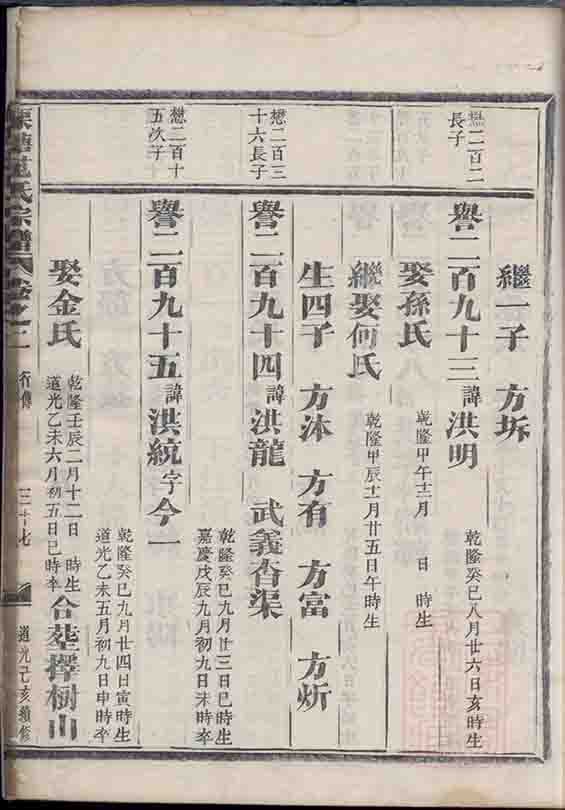 繼一子 方坼
懋二百二長子
譽二百九十三 諱洪明 乾隆癸巳八月廿六日亥時生
娶孫氏 乾隆甲午十二月 日 時生
繼娶何氏 乾隆甲辰十一月廿五日午時生
生四子 方沐 方有 方富 方炘
懋二百三十六長子
譽二百九十四 諱洪龍 武義杳渠 乾隆癸巳九月廿三日巳時生
嘉慶戊辰九月初九日未時卒
懋二百十五次子
譽二百九十五 諱洪統 字今一 乾隆癸巳九月廿四日寅時生
道光乙未五月初九日申時卒
娶金氏 乾隆壬辰二月十二日 時生
道光乙未六月初五日巳時卒 合塟擇樹山
氏宗譜卷之二 行傳 三十七 道光己亥續修